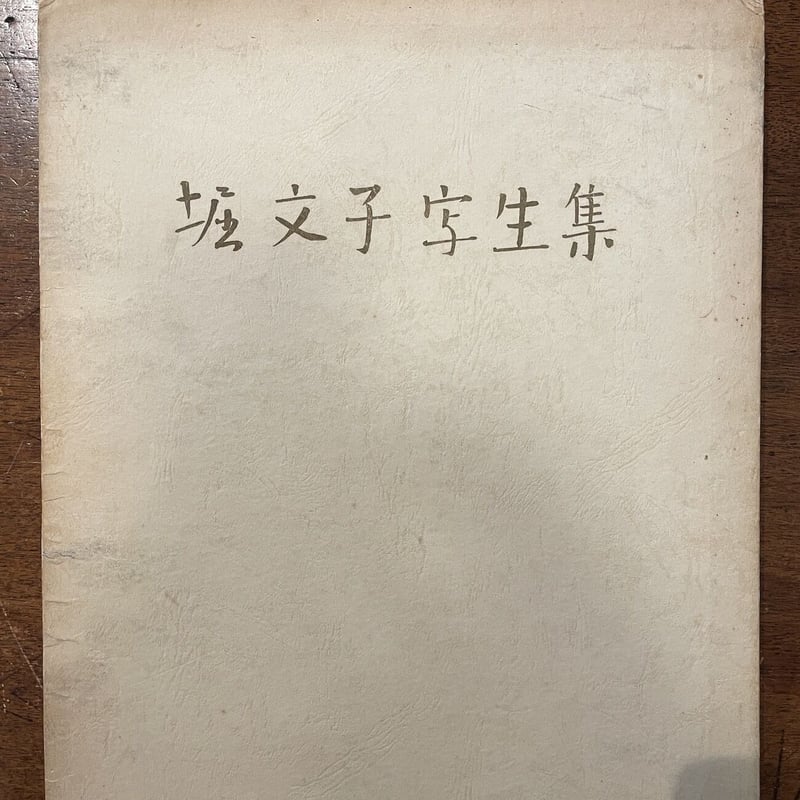 堀文子写生集